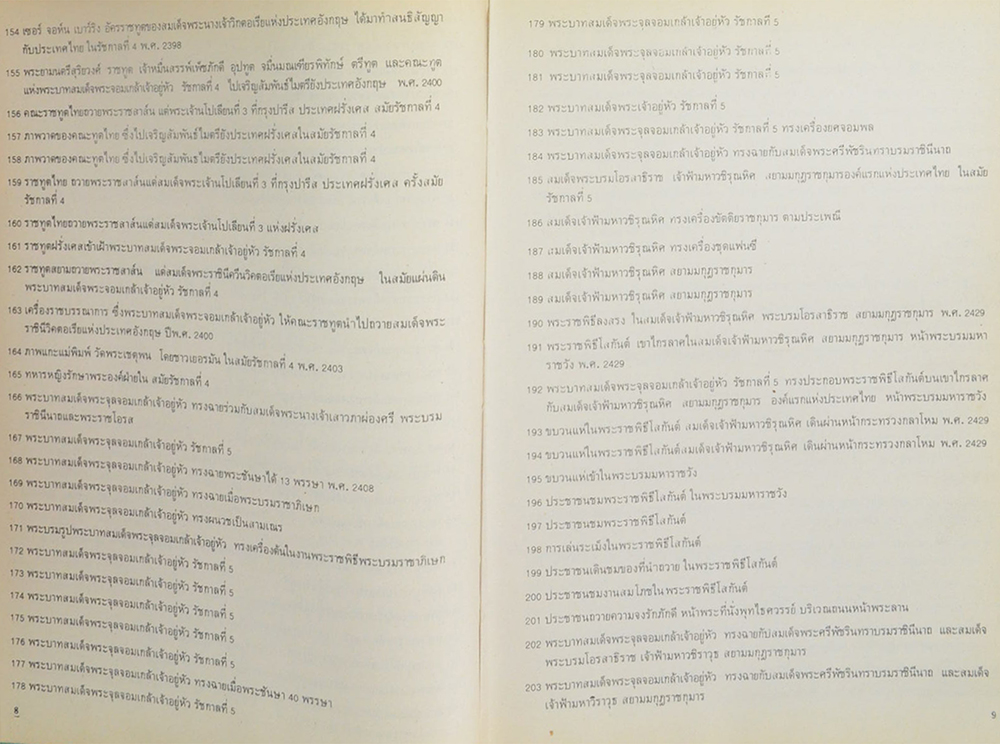 154 เซอร์ จอห์น เบาว์ริง อัครราชทูตของสมเด็จพระนางเจ้าวิกตอเรียแห่งประเทศอังกฤษ ได้มาทำสนธิสัญญา
กับประเทศไทย ในรัชกาลที่ 4 พ.ศ. 2398
155 พระยามนตรีสุริยวงศ์ ราชทูต เจ้าหมื่นสรรพ์เพ็ชภักดี อุปทูต จมื่นมณเฑียรพิทักษ์ ตรีทูต และคณะทูต
แห่งพระบาทสมเด็จพระจอมเกล้าเจ้าอยู่หัว รัชกาลที่ 4 ไปเจริญสัมพันธ์ไมตรียังประเทศอังกฤษ พ.ศ. 2400
156 คณะราชทูตไทยถวายพระราชสาส์น แด่พระเจ้านโปเลียนที่ 3 ที่กรุงปารีส ประเทศฝรั่งเศส สมัยรัชกาลที่ 4
157 ภาพวาดของคณะทูตไทย ซึ่งไปเจริญสัมพันธ์ไมตรียังประเทศฝรั่งเศสในสมัยรัชกาลที่ 4
158 ภาพวาดของคณะทูตไทย ซึ่งไปเจริญสัมพันธ์ไมตรียังประเทศฝรั่งเศสในสมัยรัชกาลที่ 4
159 ราชทูตไทย ถวายพระราชสาส์นแด่สมเด็จพระเจ้านโปเลียนที่ 3 ที่กรุงปารีส ประเทศฝรั่งเศส ครั้งสมัย
รัชกาลที่ 4
160 ราชทูตไทยถวายพระราชสาส์นแด่สมเด็จพระเจ้านโปเลียนที่ 3 แห่งฝรั่งเศส
161 ราชทูตฝรั่งเศสเข้าเฝ้าพระบาทสมเด็จพระจอมเกล้าเจ้าอยู่หัว รัชกาลที่ 4
162 ราชทูตสยามถวายพระราชสาส์น แด่สมเด็จพระราชินีควีนวิคตอเรียแห่งประเทศอังกฤษ ในสมัยแผ่นดิน
พระบาทสมเด็จพระจอมเกล้าเจ้าอยู่หัว รัชกาลที่ 4
163 เครื่องราชบรรณาการ ซึ่งพระบาทสมเด็จพระจอมเกล้าเจ้าอยู่หัว ให้คณะราชทูตนำไปถวายสมเด็จพระ
ราชินีวิคตอเรียแห่งประเทศอังกฤษ ปีพ.ศ. 2400
164 ภาพแกะแม่พิมพ์ วัดพระเชตุพน โดยชาวเยอรมัน ในสมัยรัชกาลที่ 4 พ.ศ. 2403
165 ทหารหญิงรักษาพระองค์ฝ่ายใน สมัยรัชกาลที่ 4
166 พระบาทสมเด็จพระจุลจอมเกล้าเจ้าอยู่หัว ทรงฉายร่วมกับสมเด็จพระนางเจ้าเสาวภาผ่องศรี พระบรม
ราชินีนาถและพระราชโอรส
167 พระบาทสมเด็จพระจุลจอมเกล้าเจ้าอยู่หัว รัชกาลที่ 5
168 พระบาทสมเด็จพระจุลจอมเกล้าเจ้าอยู่หัว ทรงฉายพระชันษาได้ 13 พรรษา พ.ศ. 2408
169 พระบาทสมเด็จพระจุลจอมเกล้าเจ้าอยู่หัว ทรงฉายเมื่อพระบรมราชาภิเษก
170 พระบาทสมเด็จพระจุลจอมเกล้าเจ้าอยู่หัว ทรงผนวชเป็นสามเณร
171 พระบรมรูปพระบาทสมเด็จพระจุลจอมเกล้าเจ้าอยู่หัว ทรงเครื่องต้นในงานพระราชพิธีพระบรมราชาภิเษก
172 พระบาทสมเด็จพระจุลจอมเกล้าเจ้าอยู่หัว รัชกาลที่ 5
173 พระบาทสมเด็จพระจุลจอมเกล้าเจ้าอยู่หัว รัชกาลที่ 5
174 พระบาทสมเด็จพระจุลจอมเกล้าเจ้าอยู่หัว รัชกาลที่ 5
175 พระบาทสมเด็จพระจุลจอมเกล้าเจ้าอยู่หัว รัชกาลที่ 5
176 พระบาทสมเด็จพระจุลจอมเกล้าเจ้าอยู่หัว รัชกาลที่ 5
177 พระบาทสมเด็จพระจุลจอมเกล้าเจ้าอยู่หัว ทรงฉายเมื่อพระชันษา 40 พรรษา
178 พระบาทสมเด็จพระจุลจอมเกล้าเจ้าอยู่หัว รัชกาลที่ 5
8
179 พระบาทสมเด็จพระจุลจอมเกล้าเจ้าอยู่หัว รัชกาลที่ 5
180 พระบาทสมเด็จพระจุลจอมเกล้าเจ้าอยู่หัว รัชกาลที่ 5
181 พระบาทสมเด็จพระจุลจอมเกล้าเจ้าอยู่หัว รัชกาลที่ 5
182 พระบาทสมเด็จพระเจ้าอยู่หัว รัชกาลที่ 5
183 พระบาทสมเด็จพระจุลจอมเกล้าเจ้าอยู่หัว รัชกาลที่ 5 ทรงเครื่องยศจอมพล
184 พระบาทสมเด็จพระจุลจอมเกล้าเจ้าอยู่หัว ทรงฉายกับสมเด็จพระศรีพัชรินทราบรมราชินีนาถ
185 สมเด็จพระบรมโอรสาธิราช เจ้าฟ้ามหาวชิรุณหิศ สยามมกุฎราชกุมารองค์แรกแห่งประเทศไทย ในสมัย
รัชกาลที่ 5
186 สมเด็จเจ้าฟ้ามหาวชิรุณหิศ ทรงเครื่องขัตติยราชกุมาร ตามประเพณี
187 สมเด็จเจ้าฟ้ามหาวชิรุณหิศ ทรงเครื่องชุดแฟนซี
188 สมเด็จเจ้าฟ้ามหาวชิรุณหิศ สยามมกุฎราชกุมาร
189 สมเด็จเจ้าฟ้ามหาวชิรุณหิศ สยามมกุฎราชกุมาร
190 พระราชพิธีลงสรง ในสมเด็จเจ้าฟ้ามหาวชิรุณหิศ พระบรมโอรสาธิราช สยามมกุฎราชกุมาร พ.ศ. 2429
191 พระราชพิธีโสกันต์ เขาไกรลาศในสมเด็จเจ้าฟ้ามหาวชิรุณหิศ สยามมกุฎราชกุมาร หน้าพระบรมมหา
ราชวัง พ.ศ. 2429
192 พระบาทสมเด็จพระจุลจอมเกล้าเจ้าอยู่หัว รัชกาลที่ 5 ทรงประกอบพระราชพิธีโสกันต์บนเขาไกรลาศ
กับสมเด็จเจ้าฟ้ามหาวชิรุณหิศ สยามมกุฎราชกุมาร องค์แรกแห่งประเทศไทย หน้าพระบรมมหาราชวัง
193 ขบวนแห่ในพระราชพิธีโสกันต์ สมเด็จเจ้าฟ้ามหาวชิรุณหิศ เดินผ่านหน้ากระทรวงกลาโหม พ.ศ. 2429
194 ขบวนแห่ในพระราชพิธีโสกันต์สมเด็จเจ้าฟ้ามหาวชิรุณหิศ เดินผ่านหน้ากระทรวงกลาโหม พ.ศ. 2429
195 ขบวนแห่เข้าในพระบรมมหาราชวัง
196 ประชาชนชมพระราชพิธีโสกันต์ ในพระบรมมหาราชวัง
197 ประชาชนชมพระราชพิธีโสกันต์
198 การเล่นระเม็งในพระราชพิธีโสกันต์
199 ประชาชนเดินชมของที่นำถวาย ในพระราชพิธีโสกันต์
200 ประชาชนชมงานสมโภชในพระราชพิธีโสกันต์
201 ประชาชนถวายความจงรักภักดี หน้าพระที่นั่งพุทไธศวรรย์ บริเวณถนนหน้าพระลาน
202 พระบาทสมเด็จพระจุลจอมเกล้าเจ้าอยู่หัว ทรงฉายกับสมเด็จพระศรีพัชรินทราบรมราชินีนาถ และสมเด็จ
พระบรมโอรสาธิราช เจ้าฟ้ามหาวชิราวุธ สยามมกุฎราชกุมาร
203 พระบาทสมเด็จพระจุลจอมเกล้าเจ้าอยู่หัว ทรงฉายกับสมเด็จพระศรีพัชรินทราบรมราชินีนาถ และสมเด็จ
เจ้าฟ้ามหาวิราวุธ สยามมกุฎราชกุมาร
9